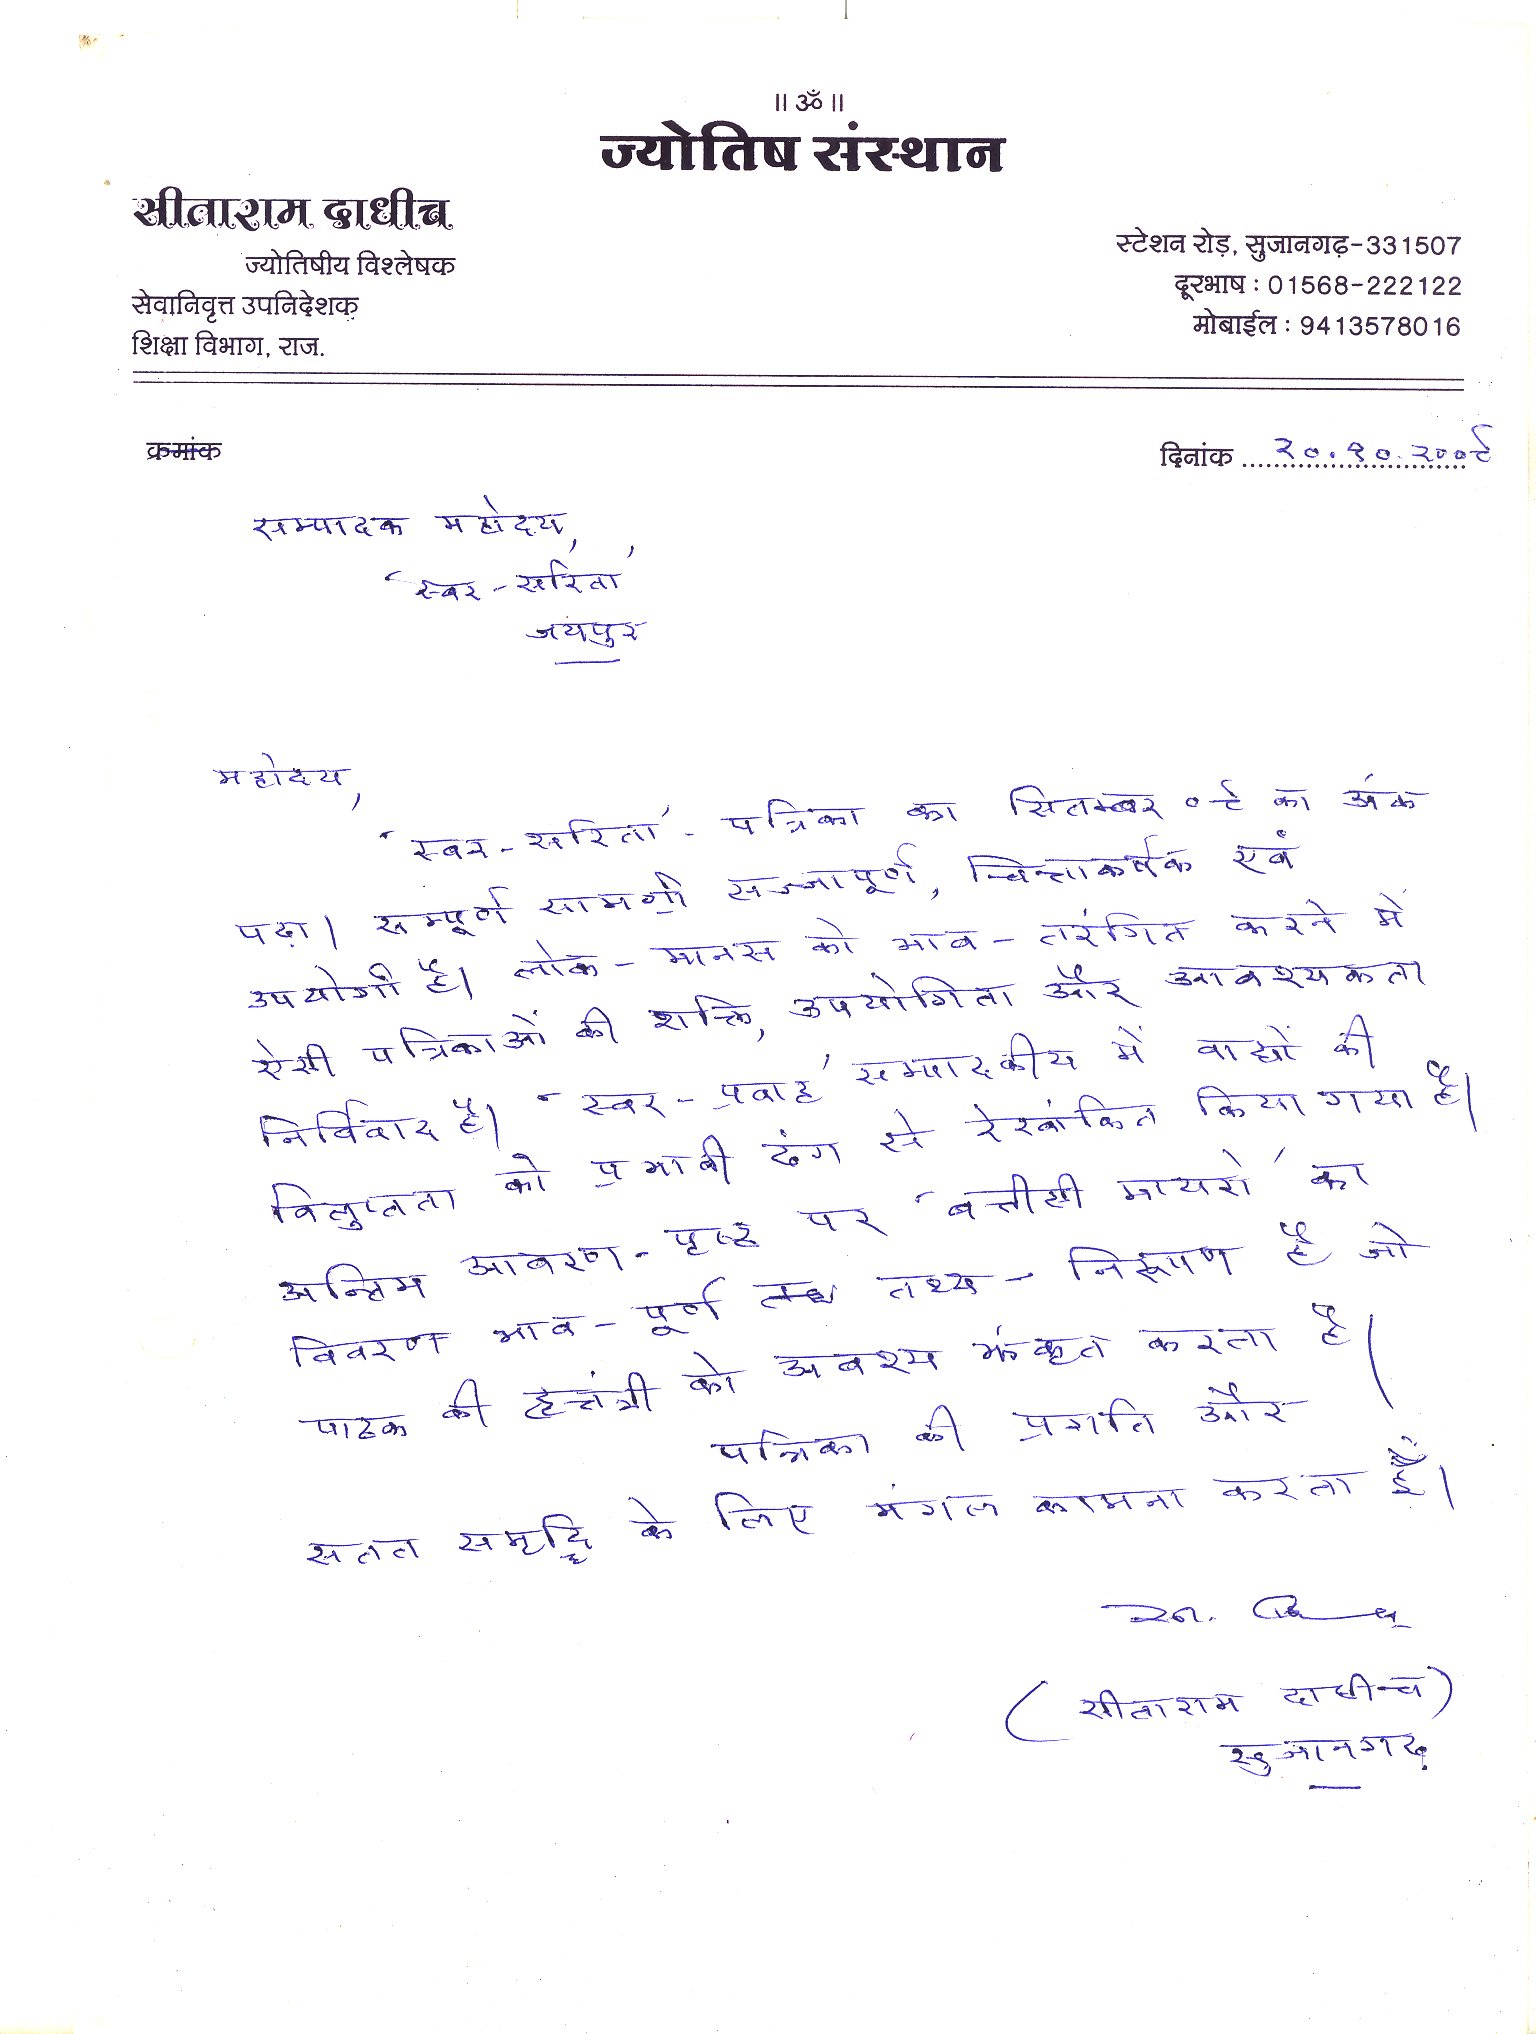 ॥ ॐ ॥
ज्योतिष संस्थान
सीताराम दाधीच
ज्योतिषीय विश्लेषक
सेवानिवृत्त उपनिदेशक
शिक्षा विभाग, राज.
स्टेशन रोड़, सुजानगढ़-331507
दूरभाष : 01568-222122
मोबाईल : 9413578016
क्रमांक
दिनांक २०.१०.२००९
सम्पादक महोदय,
'स्वर-सरिता'
जयपुर
महोदय,
'स्वर-सरिता'- पत्रिका का सितम्बर ०९ का अंक
पढ़ा। सम्पूर्ण सामग्री सज्जापूर्ण, चित्ताकर्षक एवं
उपयोगी है। लोक-मानस को भाव-तरंगित करने में
ऐसी पत्रिकाओं की शक्ति, उपयोगिता और आवश्यकता
निर्विवाद है। 'स्वर-प्रवाह' सम्पादकीय में वाद्यों की
विलुप्तता को प्रभावी ढंग से रेखांकित किया गया है।
अन्तिम आवरण-पृष्ठ पर 'बत्तीसी मायरो' का
विवरण भाव-पूर्ण तथ्य-निरूपण है जो
पाठक की हृत्तंत्री को अवश्य झंकृत करता है।
पत्रिका की प्रगति और
सतत समृद्धि के लिए मंगल कामना करता हूँ।
(सीताराम दाधीच)
सुजानगढ़